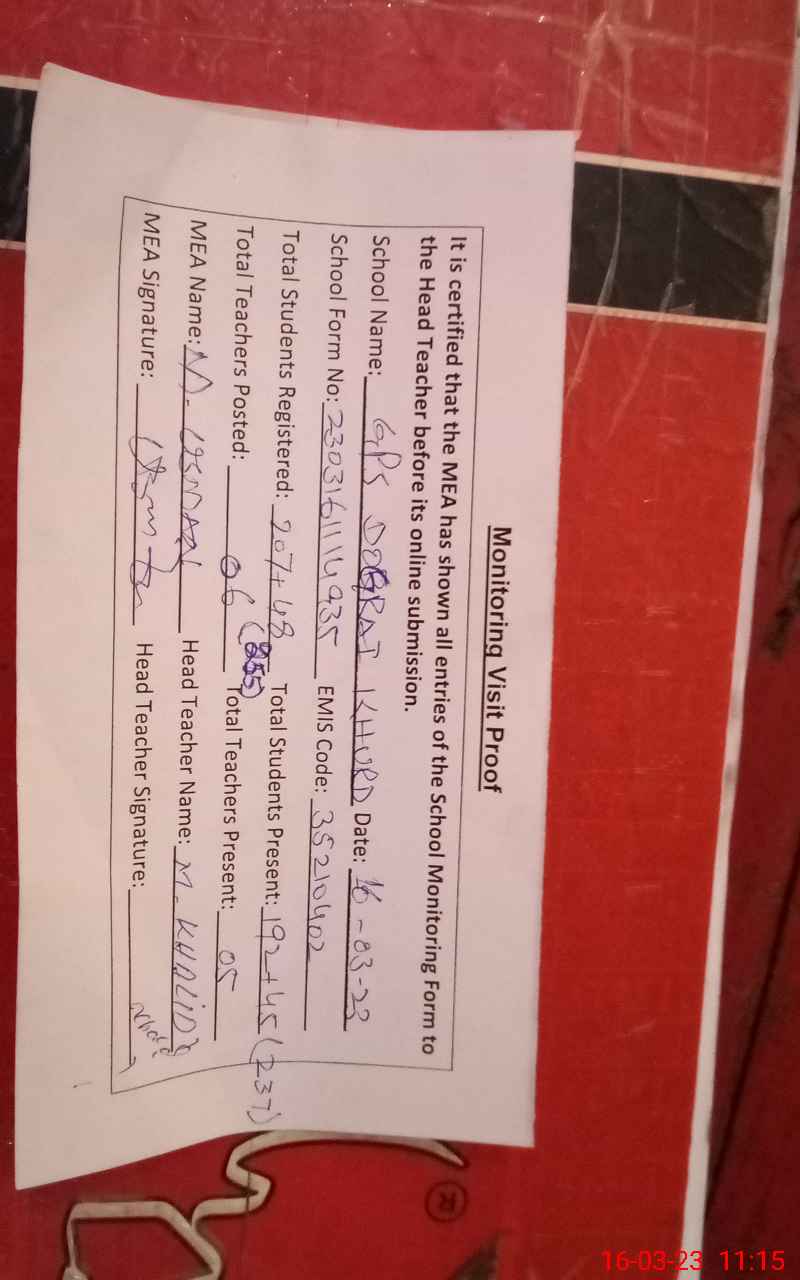 Monitoring Visit Proof
It is certified that the MEA has shown all entries of the School Monitoring Form to
the Head Teacher before its online submission.
School Name: GPS DOGRAI KHURD Date: 16-03-23
School Form No: 2303161114935 EMIS Code: 35210402
Total Students Registered: 207+48 (255) Total Students Present: 192+45 (237)
Total Teachers Posted: 06 Total Teachers Present: 05
MEA Name: M. USMAN Head Teacher Name: M. KHALID
MEA Signature: Head Teacher Signature:
®
16-03-23 11:15